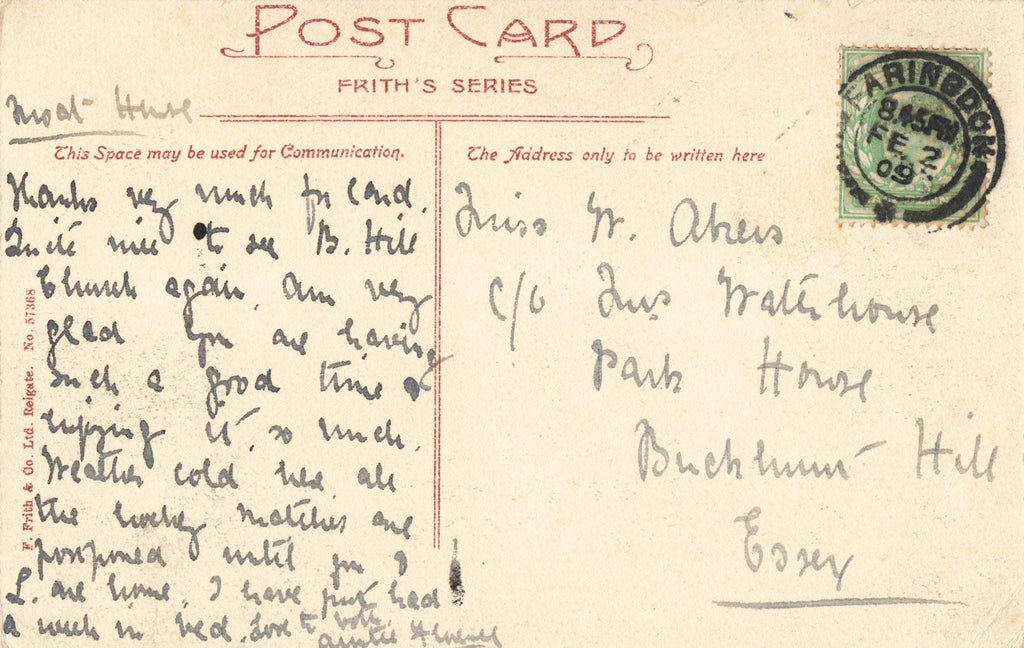 POST CARD
FRITH'S SERIES
Moat House
This Space may be used for Communication.
The Address only to be written here
FARINGDON
8.45PM
FE 2
09
Thanks very much for Card.
Quite nice to see B. Hill
Church again, Am very
glad you are having
such a good time &
enjoying it so much.
Weather cold here all
the hockey matches are
postponed until you &
L. are home. I have just had
a week in bed. Love to both
Auntie
Miss W. Akers
C/o Mrs Waterhouse
Park House
Buckhurst Hill
Essex
F. Frith & Co. Ltd. Reigate. No. 57368